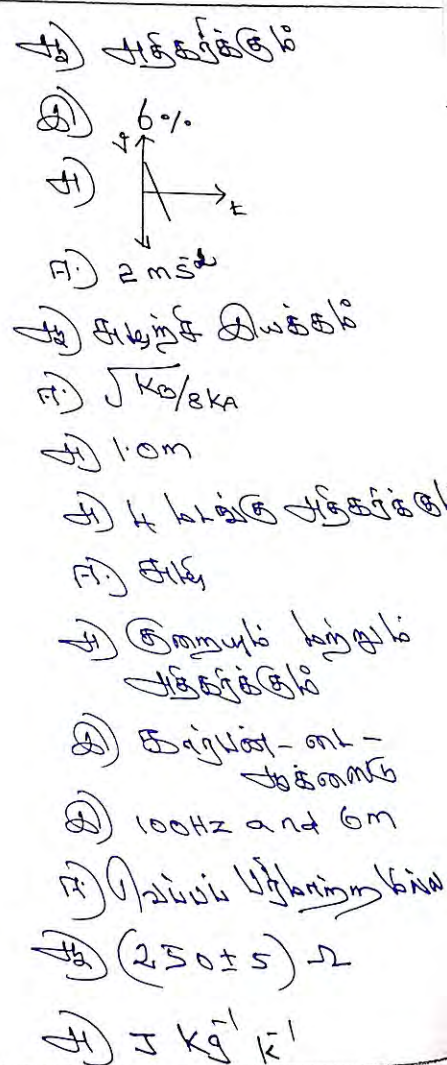 ஆ) அதிகரிக்கும்
இ) 6%
அ) v t
ஈ) 2 ms⁻²
ஆ) சுழற்சி இயக்கம்
ஈ) √K_B/8K_A
அ) 1.0m
அ) 4 மடங்கு அதிகரிக்கு
ஈ) சுழி
அ) குறையும் மற்றும்
அதிகரிக்கும்
இ) கார்பன்-டை-
ஆக்ஸைடு
இ) 100Hz and 6m
ஈ) வெப்பப் பரிமாற்றமில்லா
ஆ) (250±5) Ω
அ) J Kg⁻¹ K⁻¹